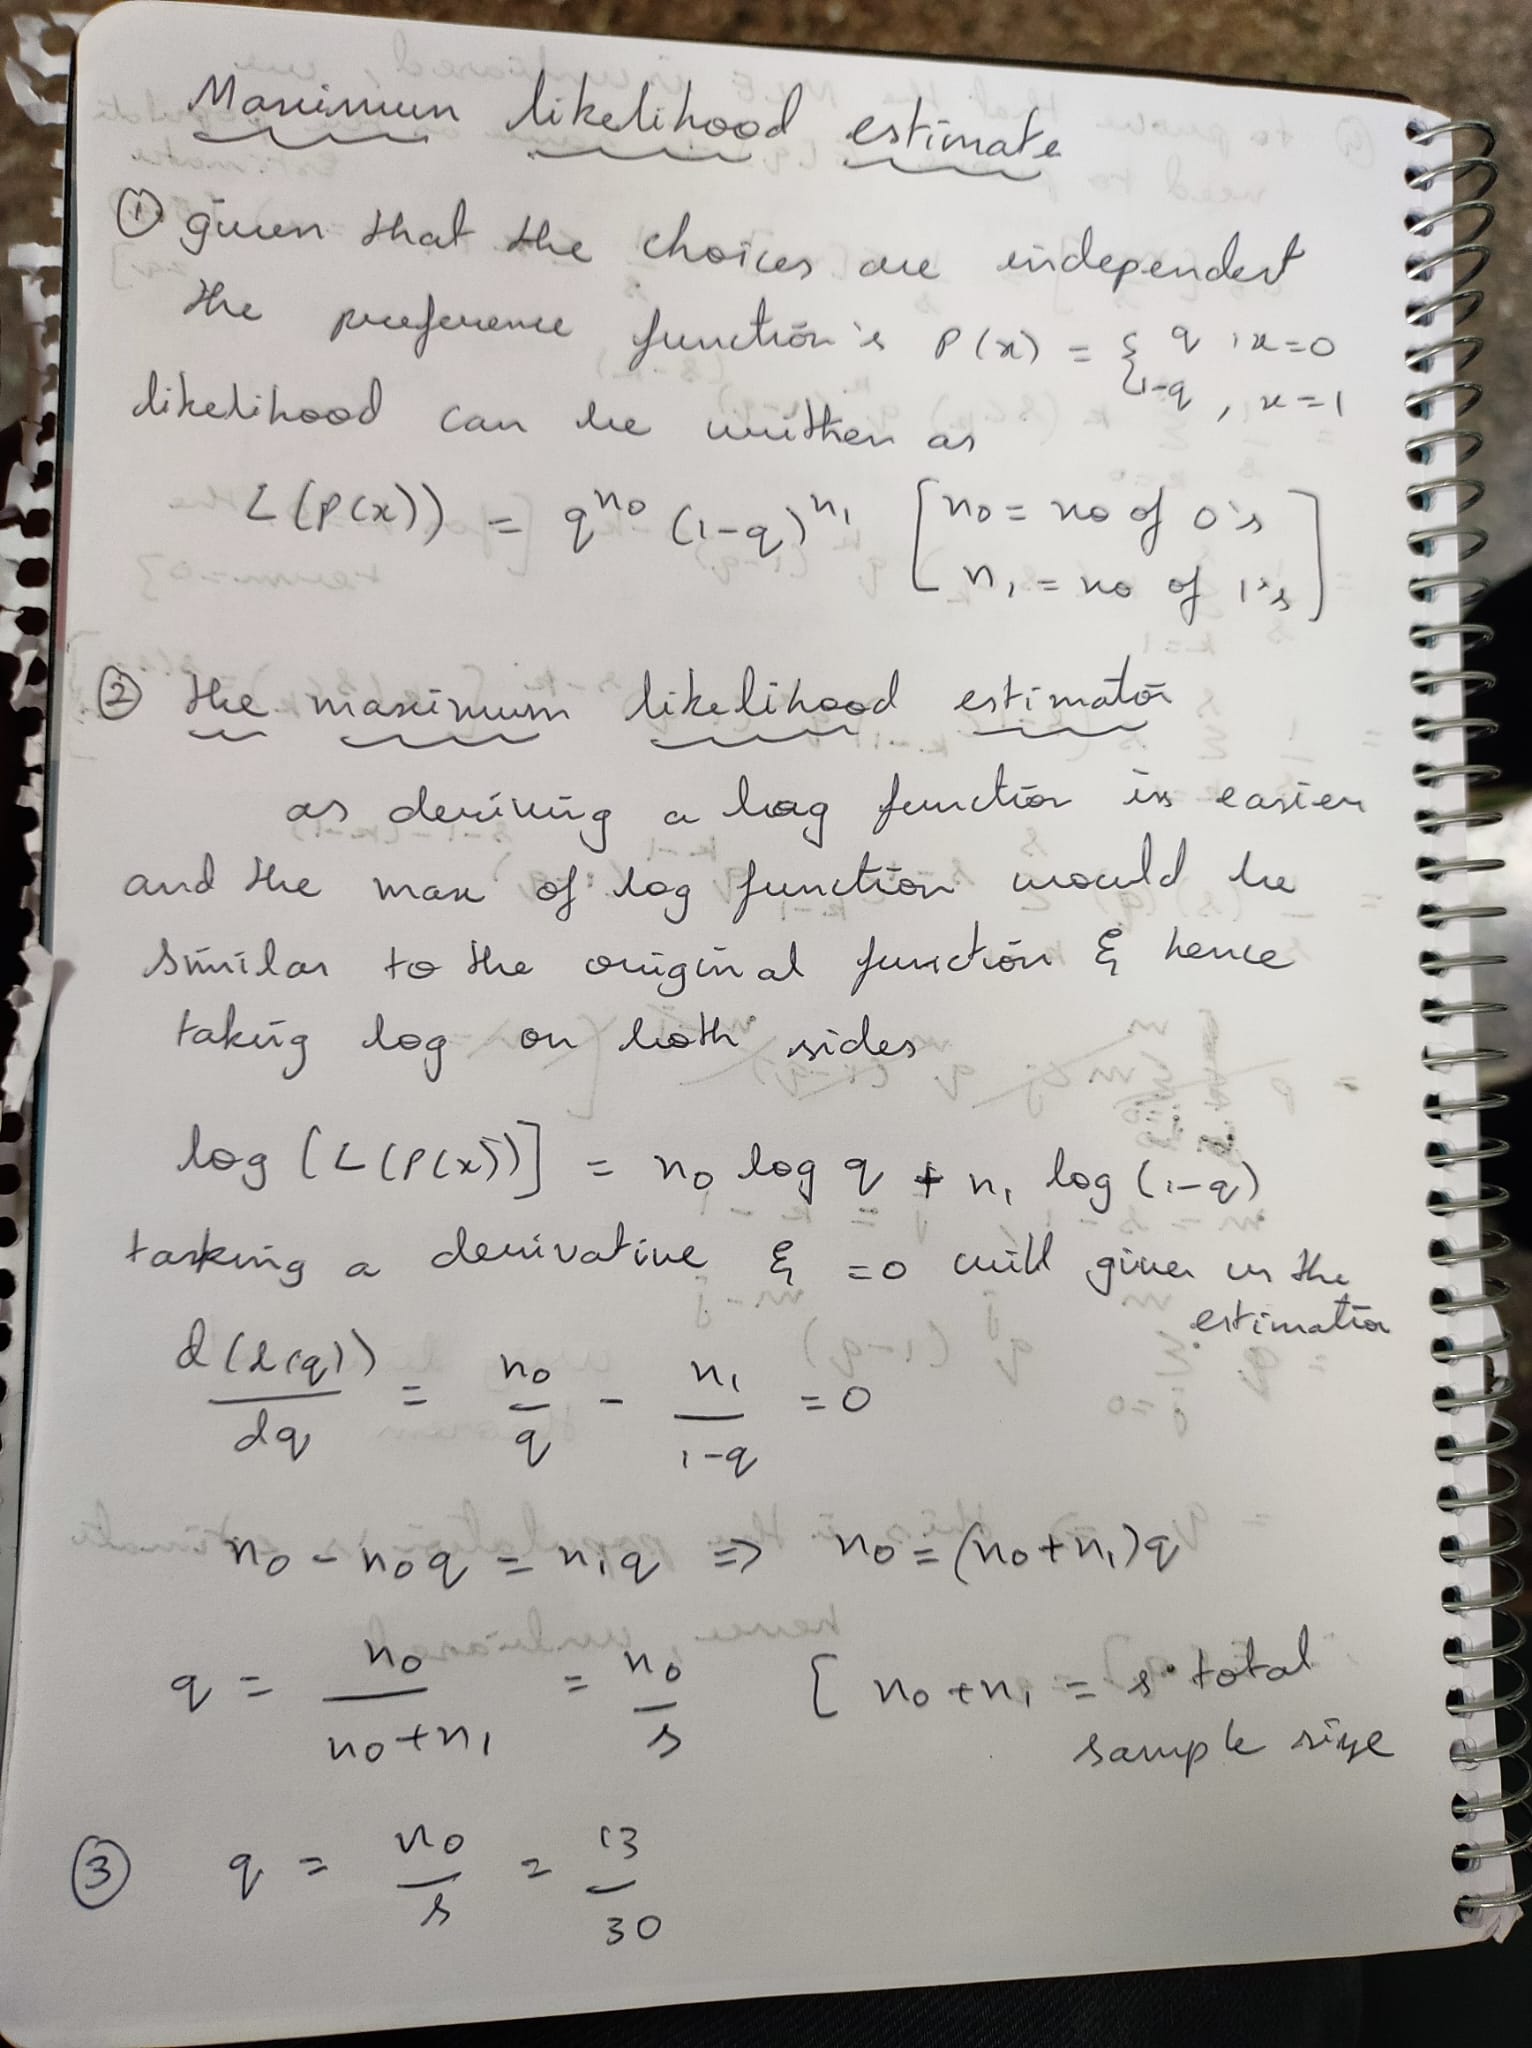 Maximum likelihood estimate
① given that the choices are independent
the preference function is P(x) = { q , x=0
1-q , x=1
likelihood can be written as
L(P(x)) = q^n₀ (1-q)^n₁ [n₀ = no of 0's
n₁ = no of 1's]
② the maximum likelihood estimator
as deriving a log function is easier
and the max of log function would be
similar to the original function & hence
taking log on both sides
log [L(P(x))] = n₀ log q + n₁ log (1-q)
tasking a derivative & =0 will give us the
estimation
d(l(q))/dq = n₀/q - n₁/1-q = 0
n₀ - n₀q = n₁q => n₀ = (n₀+n₁)q
q = n₀/n₀+n₁ = n₀/s [ n₀+n₁ = s total
sample size
③ q = n₀/s = 13/30